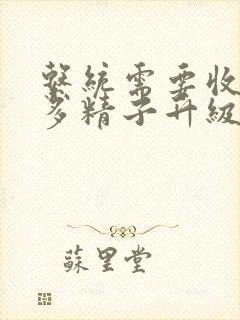 繫統需要收
多精子升級
蘇里堂